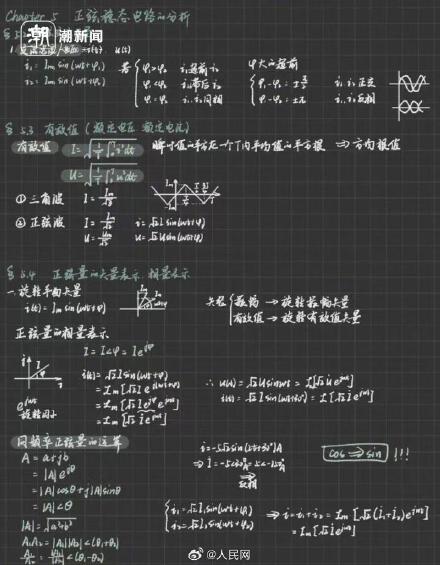 Chapter 5 正弦稳态电路的分析
潮新闻
i₁ = Iₘ sin(ωt+φ₁)
i₂ = Iₘ sin(ωt+φ₂)
若 φ₁>φ₂ i₁超前i₂
φ₁<φ₂ i₁滞后i₂
φ₁=φ₂ i₁ i₂同相
φ大的超前
φ₁-φ₂=±π/2 i₁ i₂正交
φ₁-φ₂=±π i₁ i₂反相
§ 5.3 有效值(额定电压 额定电流)
有效值 I = √(1/T ∫₀ᵀ i²dt) 瞬时值的平方在一个T内平均值的平方根 ⇒ 方均根值
U = √(1/T ∫₀ᵀ u²dt)
① 三角波 I = Iₘ/√3
② 正弦波 I = Iₘ/√2 i=√2 I sin(ωt+φ)
U = Uₘ/√2 u=√2 U sin(ωt+φ)
§ 5.4 正弦量的矢量表示、相量表示
一. 旋转平面矢量
i(t) = Iₘ sin(ωt+φ)
矢径 振幅 → 旋转振幅矢量
有效值 → 旋转有效值矢量
正弦量的相量表示
İ = I∠φ = I e^{jφ}
i(t) = √2 I sin(ωt+φ)
= Iₘ[√2 I e^{j(ωt+φ)}]
= Iₘ[√2 I e^{jφ} e^{jωt}]
= Iₘ[√2 İ e^{jωt}]
∴ u(t) = √2 U sin ωt = Iₘ[√2 U̇ e^{jωt}]
e^{jωt}
旋转因子
同频率正弦量的运算
A = a+jb
= |A| e^{jθ}
= |A| cosθ + j|A| sinθ
= |A|∠θ
|A| = √(a²+b²)
A₁A₂ = |A₁||A₂|∠(θ₁+θ₂)
A₁/A₂ = |A₁|/|A₂| ∠(θ₁-θ₂)
反相
cos ⇒ sin !!!
i₁ = √2 I₁ sin(ωt+φ₁)
i₂ = √2 I₂ sin(ωt+φ₂)
⇒ i = i₁+i₂ = Iₘ[√2(İ₁+İ₂)e^{jωt}]
= Iₘ[√2 İ e^{jωt}]
@人民网